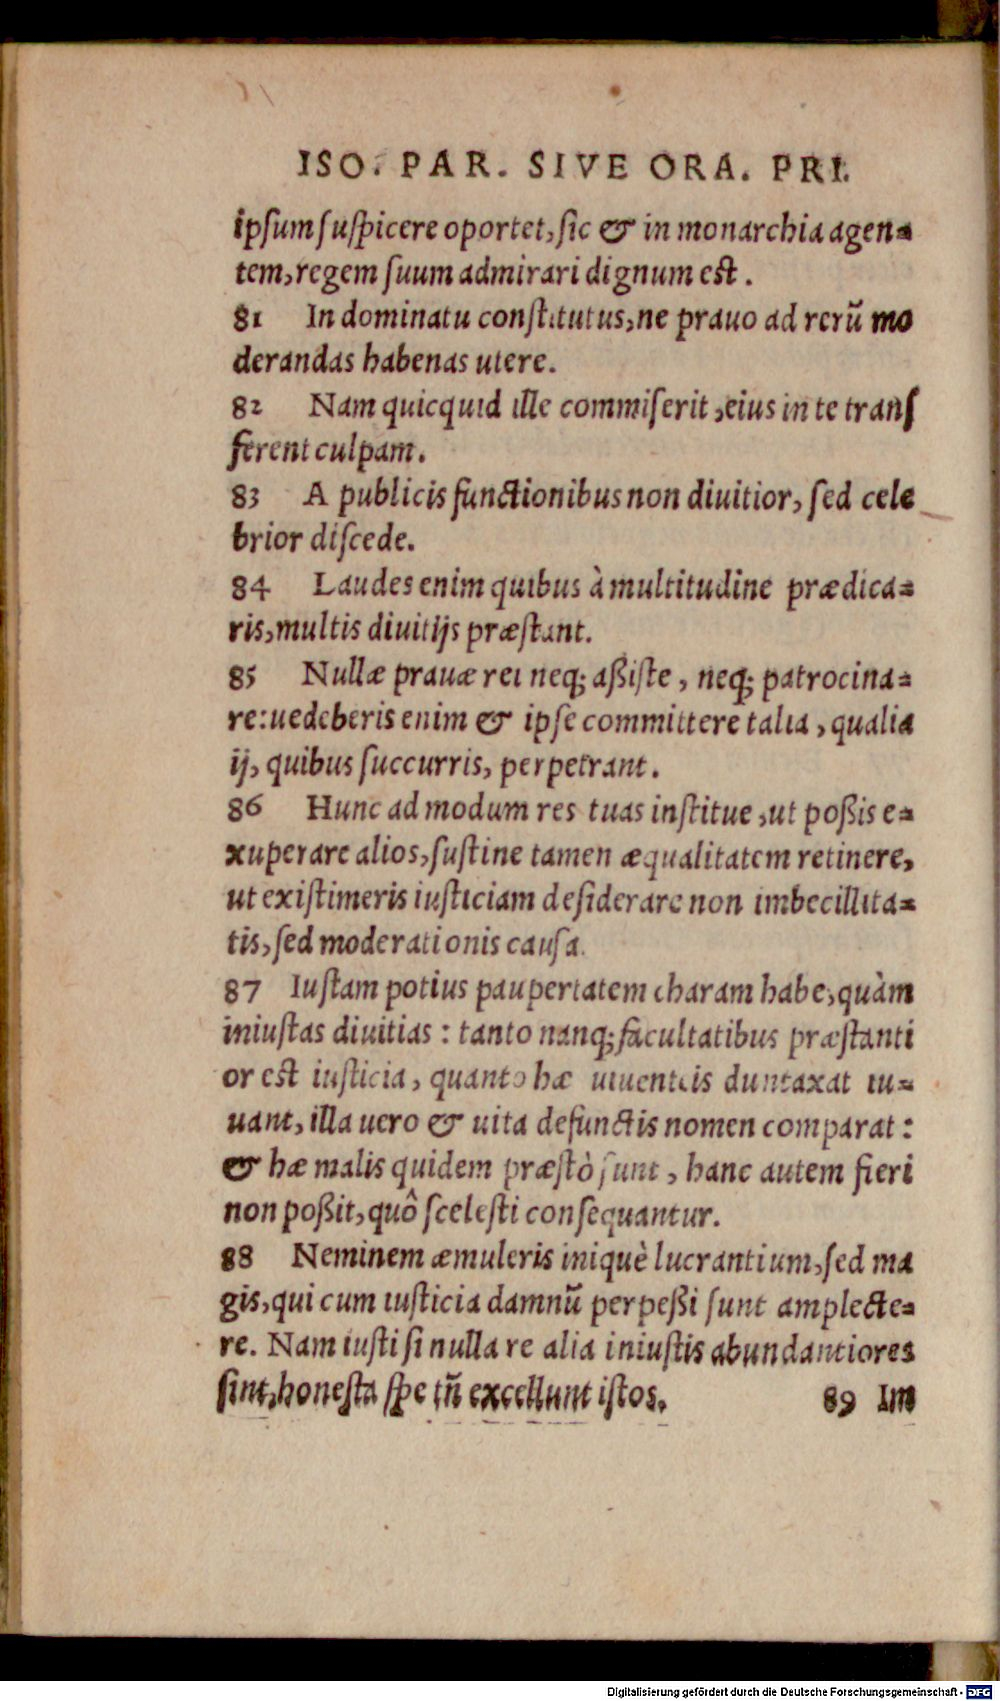 ISO. PAR. SIVE ORA. PRI.
ipſum ſuſpicere oportet, ſic & in monarchia agen-
tem, regem ſuum admirari dignum eſt.
81 In dominatu conſtitutus, ne prauo ad rerũ mo
derandas habenas utere.
82 Nam quicquid ille commiſerit, eius in te tranſ
ferent culpam.
83 A publicis functionibus non diuitior, ſed cele
brior diſcede.
84 Laudes enim quibus à multitudine prædica-
ris, multis diuitijs præſtant.
85 Nullæ prauæ rei neq; aßiſte, neq; patrocina-
re: uedeberis enim & ipſe committere talia, qualia
ij, quibus ſuccurris, perpetrant.
86 Hunc ad modum res tuas inſtitue, ut poßis e-
xuperare alios, ſuſtine tamen æqualitatem retinere,
ut exiſtimeris iuſticiam deſiderare non imbecillita-
tis, ſed moderationis cauſa.
87 Iuſtam potius paupertatem charam habe, quàm
iniuſtas diuitias: tanto nanq; facultatibus præſtanti
or eſt iuſticia, quanto hæ uiuenteis duntaxat iu-
uant, illa uero & uita defunctis nomen comparat:
& hæ malis quidem præſtò ſunt, hanc autem fieri
non poßit, quô ſceleſti conſequantur.
88 Neminem æmuleris iniquè lucrantium, ſed ma
gis, qui cum iuſticia damnũ perpeßi ſunt amplecte-
re. Nam iuſti ſi nulla re alia iniuſtis abundantiores
ſint, honeſta ſpe tñ excellunt iſtos. 89 Im
Digitalisierung gefördert durch die Deutsche Forschungsgemeinschaft - DFG